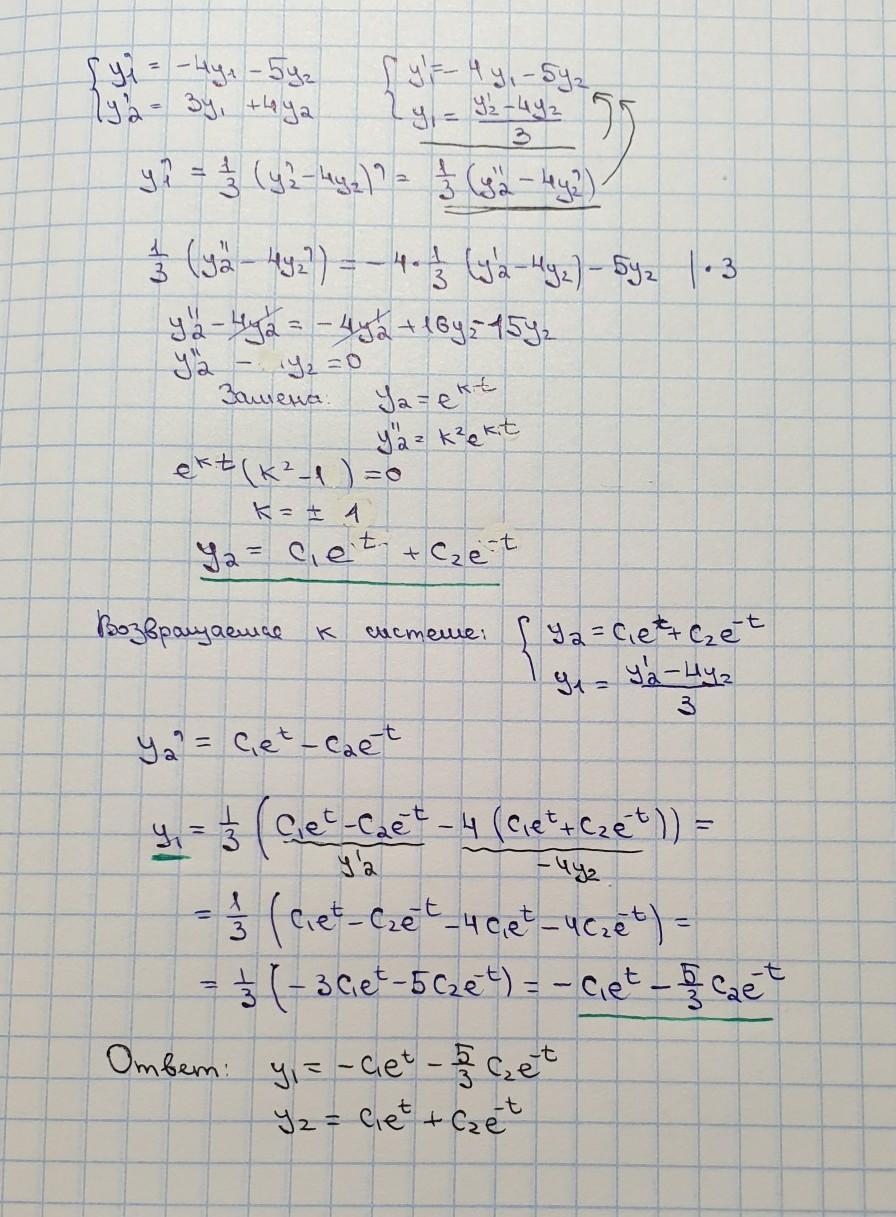 { y₁' = -4y₁ - 5y₂    { y₁' = -4y₁ - 5y₂
{ y₂' = 3y₁ + 4y₂    { y₁ = (y₂' - 4y₂)/3
y₁' = 1/3 (y₂' - 4y₂)' = 1/3 (y₂'' - 4y₂')
1/3 (y₂'' - 4y₂') = -4 · 1/3 (y₂' - 4y₂) - 5y₂ | · 3
y₂'' - 4y₂' = -4y₂' + 16y₂ - 15y₂
y₂'' - y₂ = 0
Замена: y₂ = e^(k·t)
y₂'' = k²e^(k·t)
e^(k·t) (k² - 1) = 0
k = ± 1
y₂ = C₁e^t + C₂e^(-t)
Возвращаемся к системе: { y₂ = C₁e^t + C₂e^(-t)
{ y₁ = (y₂' - 4y₂)/3
y₂' = C₁e^t - C₂e^(-t)
y₁ = 1/3 (C₁e^t - C₂e^(-t) - 4 (C₁e^t + C₂e^(-t))) =
y₂'    -4y₂
= 1/3 (C₁e^t - C₂e^(-t) - 4C₁e^t - 4C₂e^(-t)) =
= 1/3 (-3C₁e^t - 5C₂e^(-t)) = -C₁e^t - 5/3 C₂e^(-t)
Ответ: y₁ = -C₁e^t - 5/3 C₂e^(-t)
y₂ = C₁e^t + C₂e^(-t)